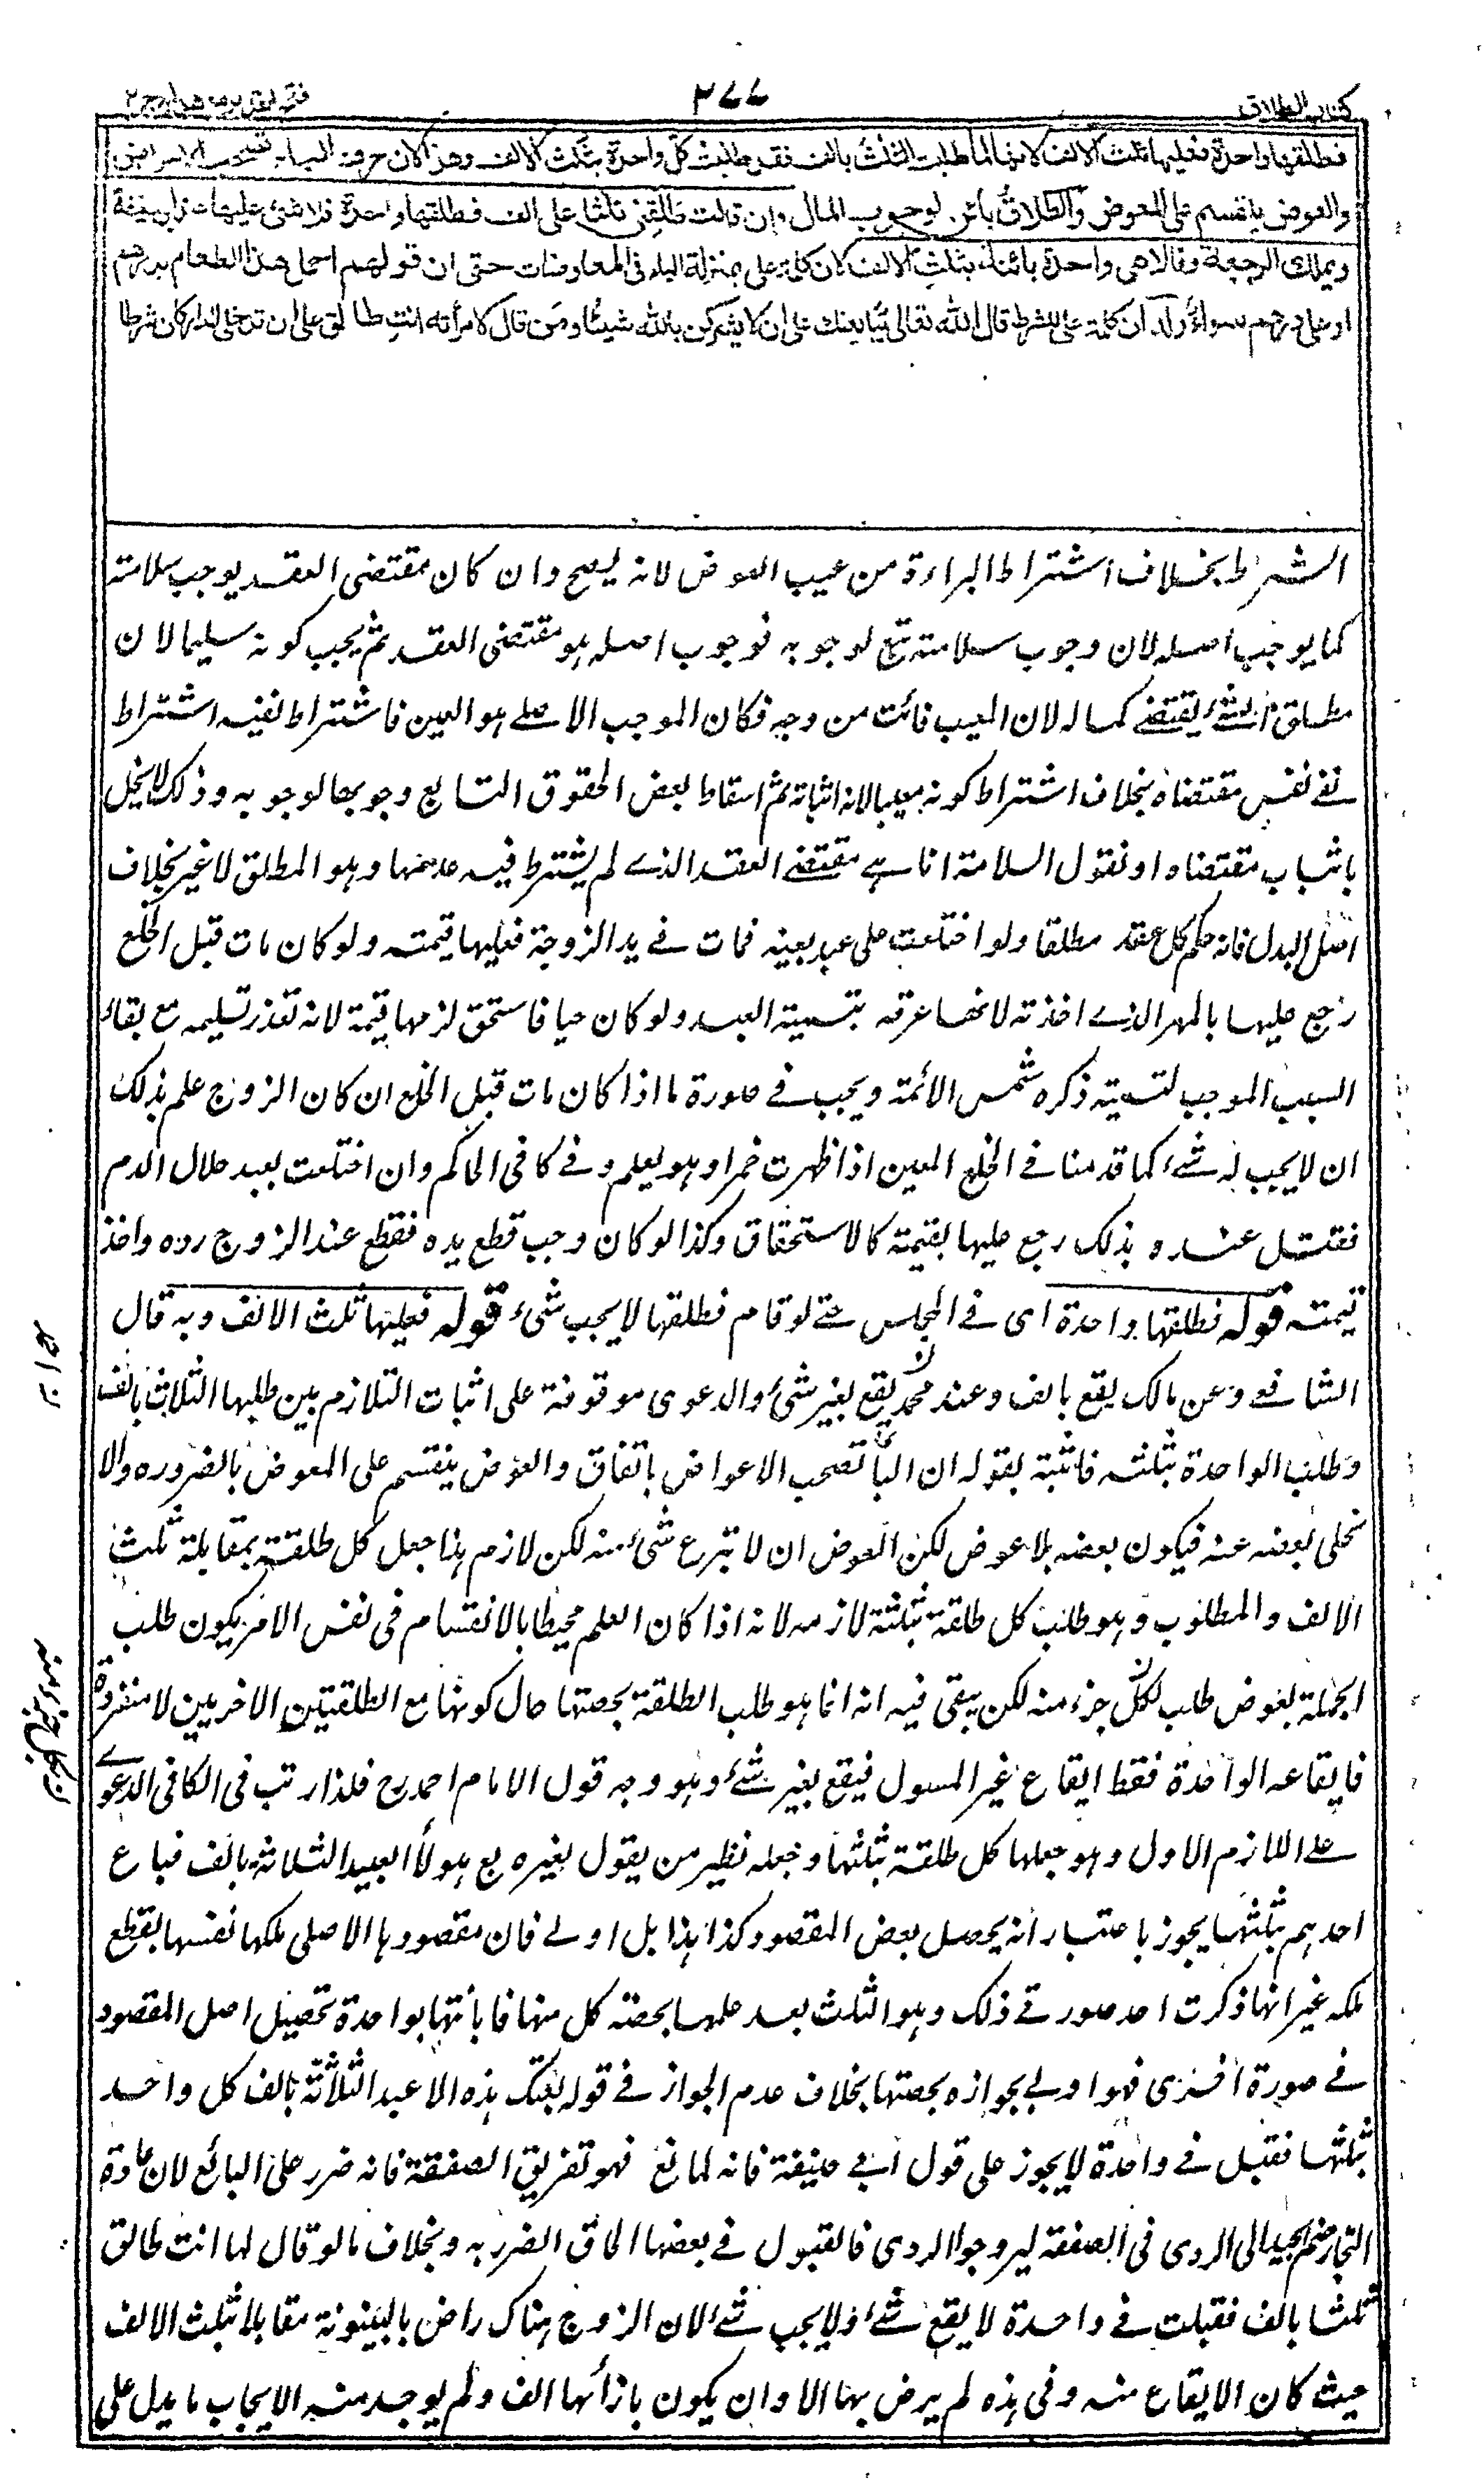 كتاب الطلاق
٣٧٧
فتح القدير مع هدايه ج ٢
فطلقها واحدة فعليها ثلث الالف لانها لما طلبت الثلث بالف فقد طلبت كل واحدة بثلث الالف وهذا لان حرف الباء تصحب الاعواض
والعوض ينقسم على المعوض والطلاق بائن لوجوب المال وان قالت طلقني ثلثا على الف فطلقها واحدة فلا شئ عليها عند ابي حنيفة
ويملك الرجعة وقالا هي واحدة بائنة بثلث الالف لان كلمة على بمنزلة الباء في المعاوضات حتى ان قولهم احمل هذا الطعام بدرهم
او على درهم سواء وله ان كلمة على للشرط قال الله تعالى يبايعنك على ان لا يشركن بالله شيئا ومن قال لامرأته انت طالق على ان تدخلي الدار كان شرطا
الشرط بخلاف اشتراط البراءة من عيب العوض لانه يصح وان كان مقتضى العقد يوجب سلامته
كما يوجب اصله لان وجوب سلامته تبع لوجوبه فوجوب اصله هو مقتضى العقد ثم يجب كونه سليما لان
مطلق الشئ يقتضے كماله لان المعيب فائت من وجه فكان الموجب الاصلے هو العين فاشتراط نفيه اشتراط
نفے نفس مقتضاه بخلاف اشتراط كونه معيبا لانه اثباته ثم اسقاط بعض الحقوق التابع وجوبها لوجوبه وذلك لا يخل
باثبات مقتضاه او نقول السلامة انما هے مقتضے العقد الذے لم يشترط فيه عدمها وهو المطلق لا غير بخلاف
اصل البدل فانه حكم كل عقد مطلقا ولو اختلعت على عبد بعينه فمات فے يد الزوجة فعليها قيمته ولو كان مات قبل الخلع
رجع عليها بالمهر الذے اخذته لانها غرته بتسمية العبد ولو كان حيا فاستحق لزمها قيمة لانه تعذر تسليمه مع بقاء
السبب الموجب لتسميته ذكره شمس الائمة ويجب فے صورة ما اذا كان مات قبل الخلع ان كان الزوج علم بذلك
ان لا يجب له شئ كما قدمنا فے الخلع المعين اذا ظهرت خمرا وهو يعلم وفے كافى الحاكم وان اختلعت بعبد حلال الدم
فقتل عنده بذلك رجع عليها بقيمته كالاستحقاق وكذا لو كان وجب قطع يده فقطع عند الزوج رده واخذ
قيمته قوله فطلقها واحدة اى فے المجلس حتے لو قام فطلقها لا يجب شئ قوله فعليها ثلث الالف وبه قال
الشافعے وعن مالك يقع بالف وعند محمد يقع بغير شئ والدعوى موقوفة على اثبات التلازم بين طلبها الثلاث بالف
وطلب الواحدة بثلثه فاثبته بقوله ان الباء تصحب الاعواض باتفاق والعوض ينقسم على المعوض بالضروره والا
نحلى بعضه عنه فيكون بعضه بلا عوض لكن العوض ان لا تبرع شئ منه لكن لازم هذا جعل كل طلقة بمقابلة ثلث
الالف والمطلوب وهو طلب كل طلقة بثلثه لازمه لانه اذا كان العلم محيطا بالانقسام فى نفس الامر يكون طلب
الجملة بعوض طلب لكل جزء منه لكن يبقى فيه انه انما هو طلب الطلقة بحصتها حال كونها مع الطلقتين الاخريين لا منفردة
فايقاعه الواحدة فقط ايقاع غير المسول فيقع بغير شئ وهو وجه قول الامام احمد رح فلذا رتب فى الكافى الدعوے
علے اللازم الاول وهو جعلها كل طلقة بثلثها وجعله نظير من يقول لغيره بع هولاء العبيد الثلاثة بالف فباع
احدهم بثلثها يجوز باعتبار انه يحصل بعض المقصود كذا هذا بل اولے فان مقصودها الاصلى ملكها نفسها بقطع
ملكه غير انها ذكرت احد صورتے ذلك وهو الثلث بعد علمها بحصته كل منها فابانتها بواحدة تحصيل اصل المقصود
فے صورة اخرى فهو اولے بجوازه بحصتها بخلاف عدم الجواز فے قوله بعتك هذه الاعبد الثلاثة بالف كل واحد
بثلثها فقبل فے واحدة لا يجوز على قول ابے حنيفة فانه لمانع فهو تفريق الصفقة فانه ضرر على البائع لان عادة
التجار ضم الجيد الى الردى فى الصفقة ليروجوا الردى فالقبول فے بعضها الحاق الضرر به وبخلاف ما لو قال لها انت طالق
ثلثا بالف فقبلت فے واحدة لا يقع شئ ولا يجب شئ لان الزوج هناك راض بالبينونة مقابلا بثلث الالف
حيث كان الايقاع منه وفى هذه لم يرض بها الا وان يكون بازائها الف ولم يوجد منه الايجاب ما يدل على